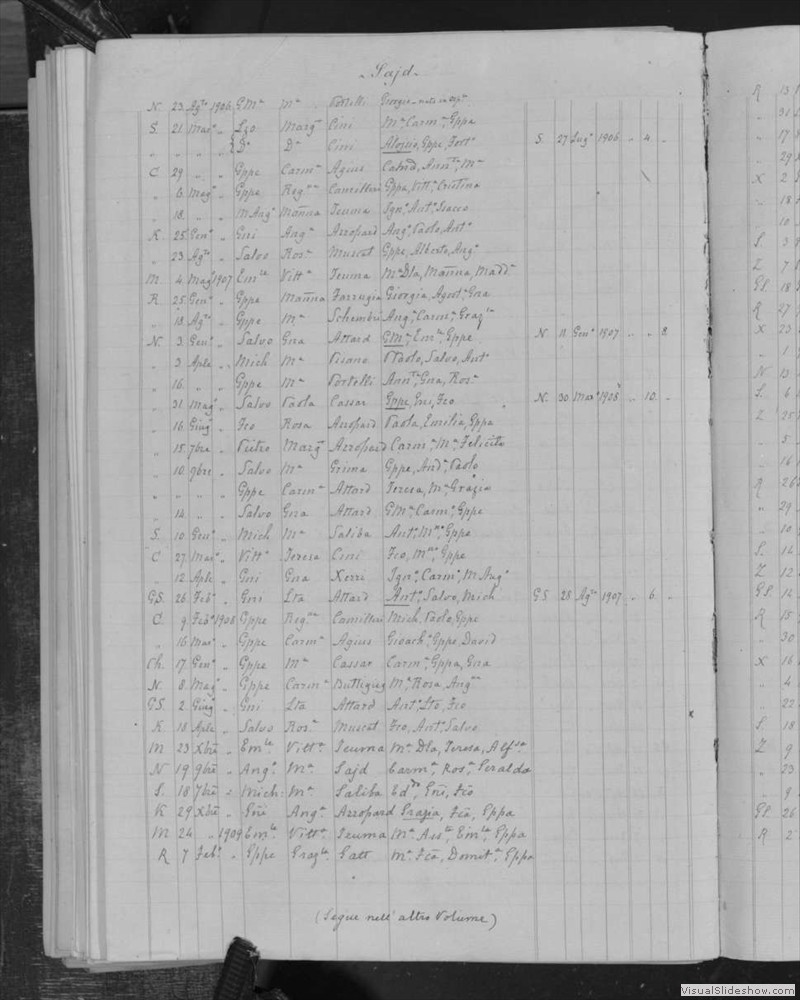 Sajd.
N. 23 Agto 1906 GMa Ma Portelli Giorgio
S. 21 Maro „ Lzo Margta Cini Ma, Carma, Gppa
„ „ „ „ Do Da Cini Aloisio, Gppe, Fort S. 27 Lugo 1906 „ 4 „
C 29 „ „ Gppe Carma Agius Ma
„ 6 Mago „ Gppe Rega Camilleri Gppa, Vitta, Cristina
„ 18 „ „ MAngo Manna Teuma Igno, Anto
K. 25 Geno „ Gni Anga Azzopard Ango, Paolo, Anto
„ 23 Agto „ Salvo Rosa Muscat Gppe, Alberto, Ango
M. 4 Mago 1907 Emle Vitta Teuma Ma Dla, Manna, Madda
R. 25 Geno „ Gppe Manna Farrugia Giorgia, Agost, Gna
„ 18 Agto „ Gppe Ma Schembri Anga, Carma, Grazla
N. 3 Geno „ Salvo Gna Attard GMa, Emle, Gppe N. 11 Geno 1907 „ „ 8
„ 3 Aple „ Mich Ma Pisano Paolo, Salvo, Anto
„ 16 „ „ Gppe Ma Portelli Annta, Gna, Rosa
„ 31 Mago „ Salvo Paola Cassar Gppe, Gni, Fco N. 30 Maro 1908 „ 10 „
„ 16 Giugo „ Fco Rosa Azzopard Paola, Emilia, Gppa
„ 15 7bre „ Pietro Margta Azzopard Carma, Ma, Felicita
„ 10 9bre „ Salvo Ma Grima Gppe, Anda, Paolo
„ „ „ „ Gppe Carma Attard Teresa, Ma, Grazia
„ 14 „ „ Salvo Gna Attard GMa, Carmo, Gppe
S. 10 Geno „ Mich Ma Saliba Anto, Mno, Gppe
C 27 Maro „ Vitto Teresa Cini Fco, Mno, Gppe
„ 12 Aple „ Gni Gna Xerri Igno, Carmo, MAngo
GS. 26 Febo „ Gni Lta Attard Anto, Salvo, Mich GS 28 Agto 1907 „ 6 „
C. 9 Febo 1908 Gppe Rega Camilleri Mich, Paolo, Gppe
„ 16 Maro „ Gppe Carma Agius Gioach, Gppe, David
Ch. 17 Geno „ Gppe Ma Cassar Carma, Gppa, Gna
N. 8 Mago „ Gppe Carma Buttigieg Ma, Rosa, Anga
GS 2 Giugo „ Gni Lta Attard Anto, Lto, Fco
K 18 Aple „ Salvo Rosa Muscat Fco, Anto, Salvo
M 23 Xbre „ Emle Vitta Teuma Ma Dla, Teresa, Alfsa
N 19 9bre „ Ango Ma Sajd Carma, Rosa, Geralda
S. 18 7bre „ Mich Ma Saliba Eddo, Gni, Fco
K 29 Xbre „ Gni Anga Azzopard Grazia, Fca, Gppa
M 24 „ 1909 Emle Vitta Teuma Ma Assta, Emle, Gppa
R 7 Febo „ Gppe Grazla Gatt Ma, Fca, Domita, Gppa
(Segue nell' altro Volume)
R 13
„ 31
„ 17
„ 29
X 2
„ 18
„ 10
S 3
Z 7
GS 18
R 27
X 23
„ 1
N 13
S. 6
Z 25
„ 5
„ 16
R 26
„ 29
„ 10
S. 14
Z 12
GS. 14
R 15
„ 30
X 16
„ 4
„ 22
S 18
Z 9
„ 23
„ 9
GS 26
R 2
VisualSlideshow.com